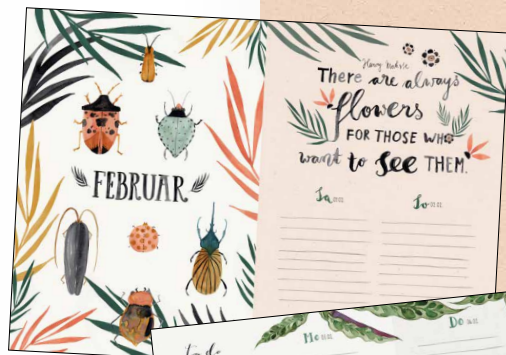 FEBRUAR
Henry Matisse
There are always
flowers
FOR THOSE WHO
want to see THEM.
Sa
So
to do
Mo
Do